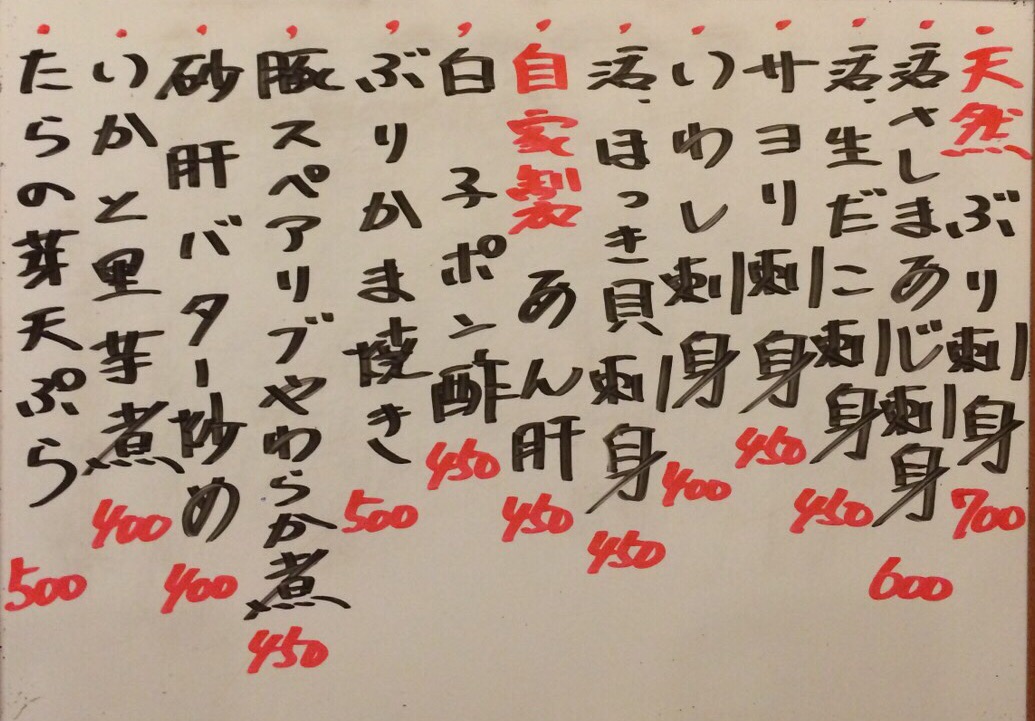 天然ぶり刺身 700
活さしまあじ刺身 600
活、生だこ刺身 450
サヨリ刺身 450
いわし刺身 400
活、ほっき貝刺身 450
自家製あん肝 450
白子ポン酢 450
ぶりかま焼き 500
豚スペアリブやわらか煮 450
砂肝バター炒め 400
いかと里芋煮 400
たらの芽天ぷら 500